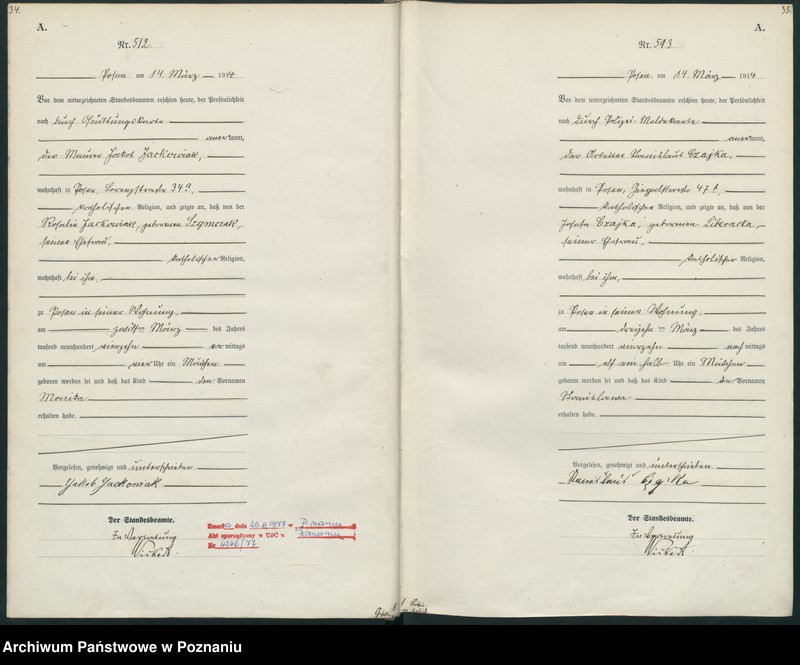 34.
A.
Nr. 512
Posen am 14. März 1914
Vor dem unterzeichneten Standesbeamten erschien heute, der Persönlichkeit
nach durch Quittungskarte
anerkannt,
der Maurer Jakob Jackowiak,
wohnhaft in Posen, Lorenzstrasse 34a,
katholischer Religion, und zeigte an, daß von der
Rosalie Jackowiak, geborenen Szymczak,
seiner Ehefrau,
katholischer Religion,
wohnhaft bei ihm,
zu Posen in seiner Wohnung,
am März des Jahres
tausend neunhundert vierzehn vormittags
um vier Uhr ein Mädchen
geboren worden sei und daß das Kind den Vornamen
Monika
erhalten habe.
Vorgelesen, genehmigt und unterschrieben
Jakob Jackowiak
Der Standesbeamte.
In Vertretung
Zmarła dnia 1977 w Poznaniu
Akt sporządzony w USC w Poznaniu
Nr 4246/77
35.
A.
Nr. 513
Posen am 14. März 1914
Vor dem unterzeichneten Standesbeamten erschien heute, der Persönlichkeit
nach durch Polizei Meldekarte
anerkannt,
der Arbeiter Stanislaus Czajka,
wohnhaft in Posen, 47b,
katholischer Religion, und zeigte an, daß von der
Josefa Czajka, geborenen Liberacka,
seiner Ehefrau,
katholischer Religion,
wohnhaft bei ihm,
zu Posen in seiner Wohnung
am dreizehn ten März des Jahres
tausend neunhundert vierzehn nachmittags
um elf ein halb Uhr ein Mädchen
geboren worden sei und daß das Kind den Vornamen
Stanislawa
erhalten habe.
Vorgelesen, genehmigt und unterschrieben
Stanislaus
Der Standesbeamte.
In Vertretung
Archiwum Państwowe w Poznaniu